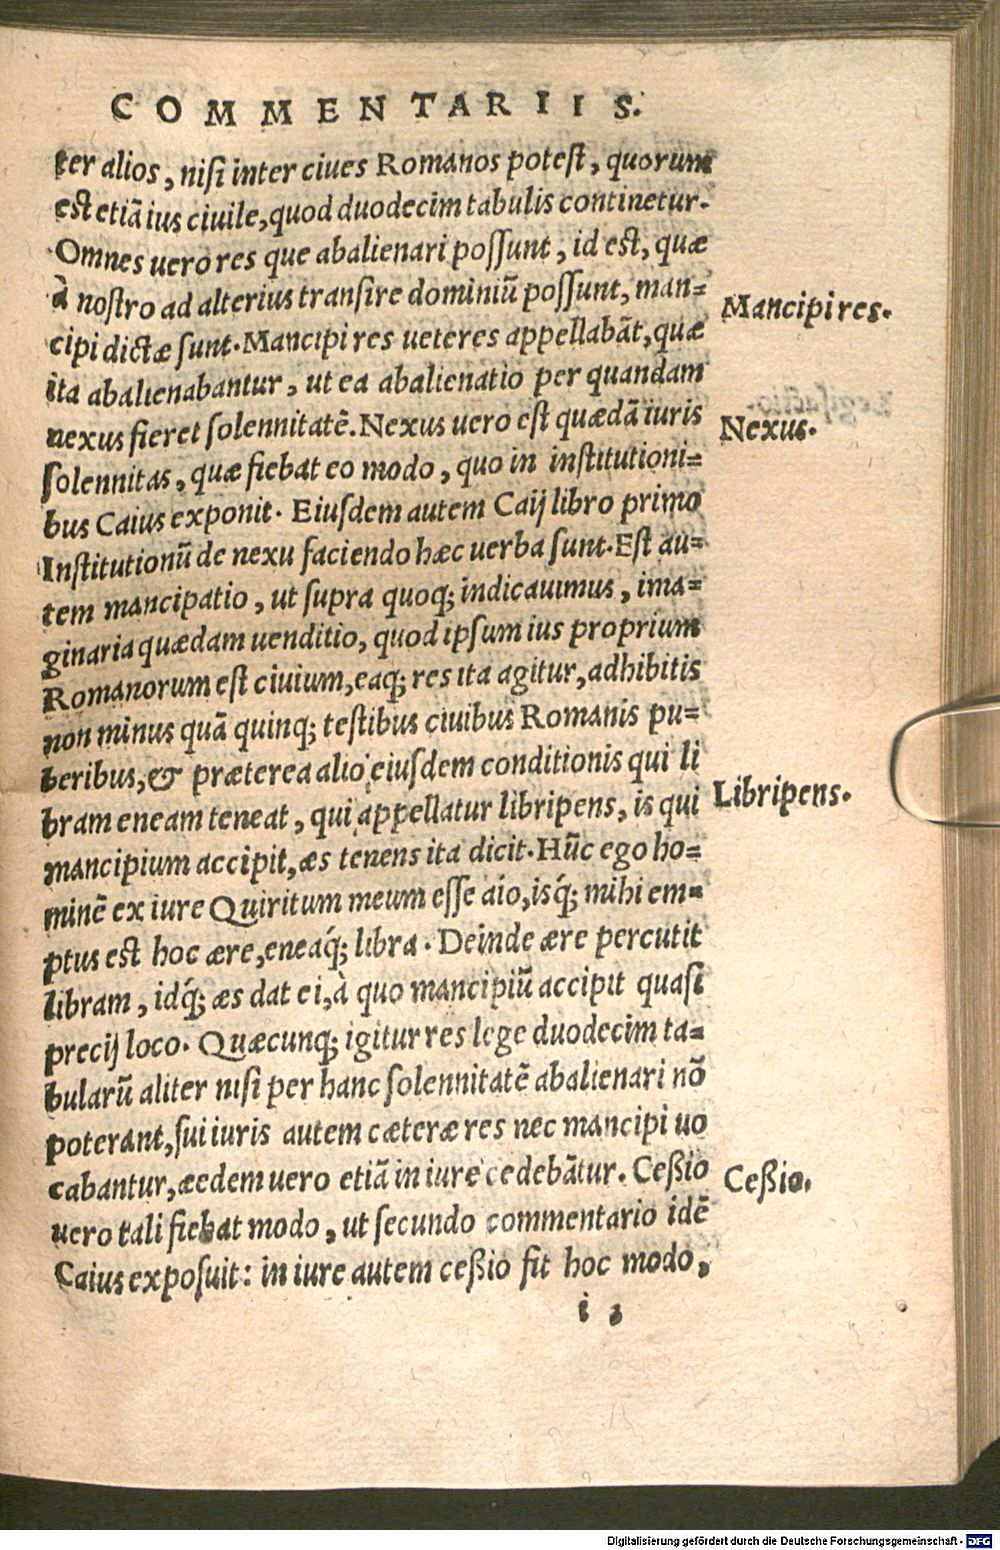 COMMENTARIIS.
ter alios, nisi inter ciues Romanos potest, quorum
est etiã ius ciuile, quod duodecim tabulis continetur.
Omnes uero res que abalienari possunt, id est, quæ
à nostro ad alterius transire dominiũ possunt, man=
Mancipi res.
cipi dictæ sunt. Mancipi res ueteres appellabãt, quæ
ita abalienabantur, ut ea abalienatio per quandam
nexus fieret solennitatẽ. Nexus uero est quædã iuris
Nexus.
solennitas, quæ fiebat eo modo, quo in institutioni=
bus Caius exponit. Eiusdem autem Caij libro primo
Institutionũ de nexu faciendo hæc uerba sunt. Est au=
tem mancipatio, ut supra quoq; indicauimus, ima=
ginaria quædam uenditio, quod ipsum ius proprium
Romanorum est ciuium, eaq; res ita agitur, adhibitis
non minus quã quinq; testibus ciuibus Romanis pu=
beribus, & præterea alio eiusdem conditionis qui li
bram eneam teneat, qui appellatur libripens, is qui
Libripens.
mancipium accipit, æs tenens ita dicit. Hũc ego ho=
minẽ ex iure Quiritum meum esse aio, isq́; mihi em=
ptus est hoc ære, eneaq́; libra. Deinde ære percutit
libram, idq́; æs dat ei, à quo mancipiũ accipit quasi
precij loco. Quæcunq; igitur res lege duodecim ta=
bularũ aliter nisi per hanc solennitatẽ abalienari nõ
poterant, sui iuris autem cæteræ res nec mancipi uo
cabantur, æedem uero etiã in iure cedebãtur. Ceßio
Ceßio.
uero tali fiebat modo, ut secundo commentario idẽ
Caius exposuit: in iure autem ceßio fit hoc modo,
i 3
Digitalisierung gefördert durch die Deutsche Forschungsgemeinschaft - DFG